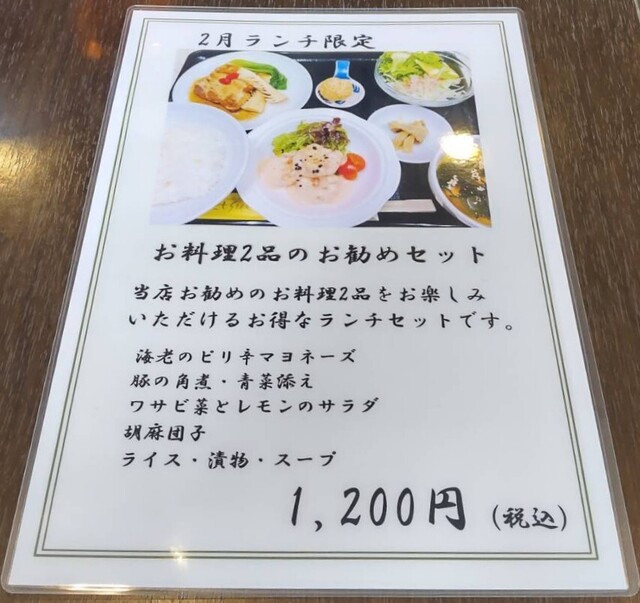 2月ランチ限定
お料理2品のお勧めセット
当店お勧めのお料理2品をお楽しみ
いただけるお得なランチセットです。
海老のピリ辛マヨネーズ
豚の角煮・青菜添え
ワサビ菜とレモンのサラダ
胡麻団子
ライス・漬物・スープ
1,200円(税込)